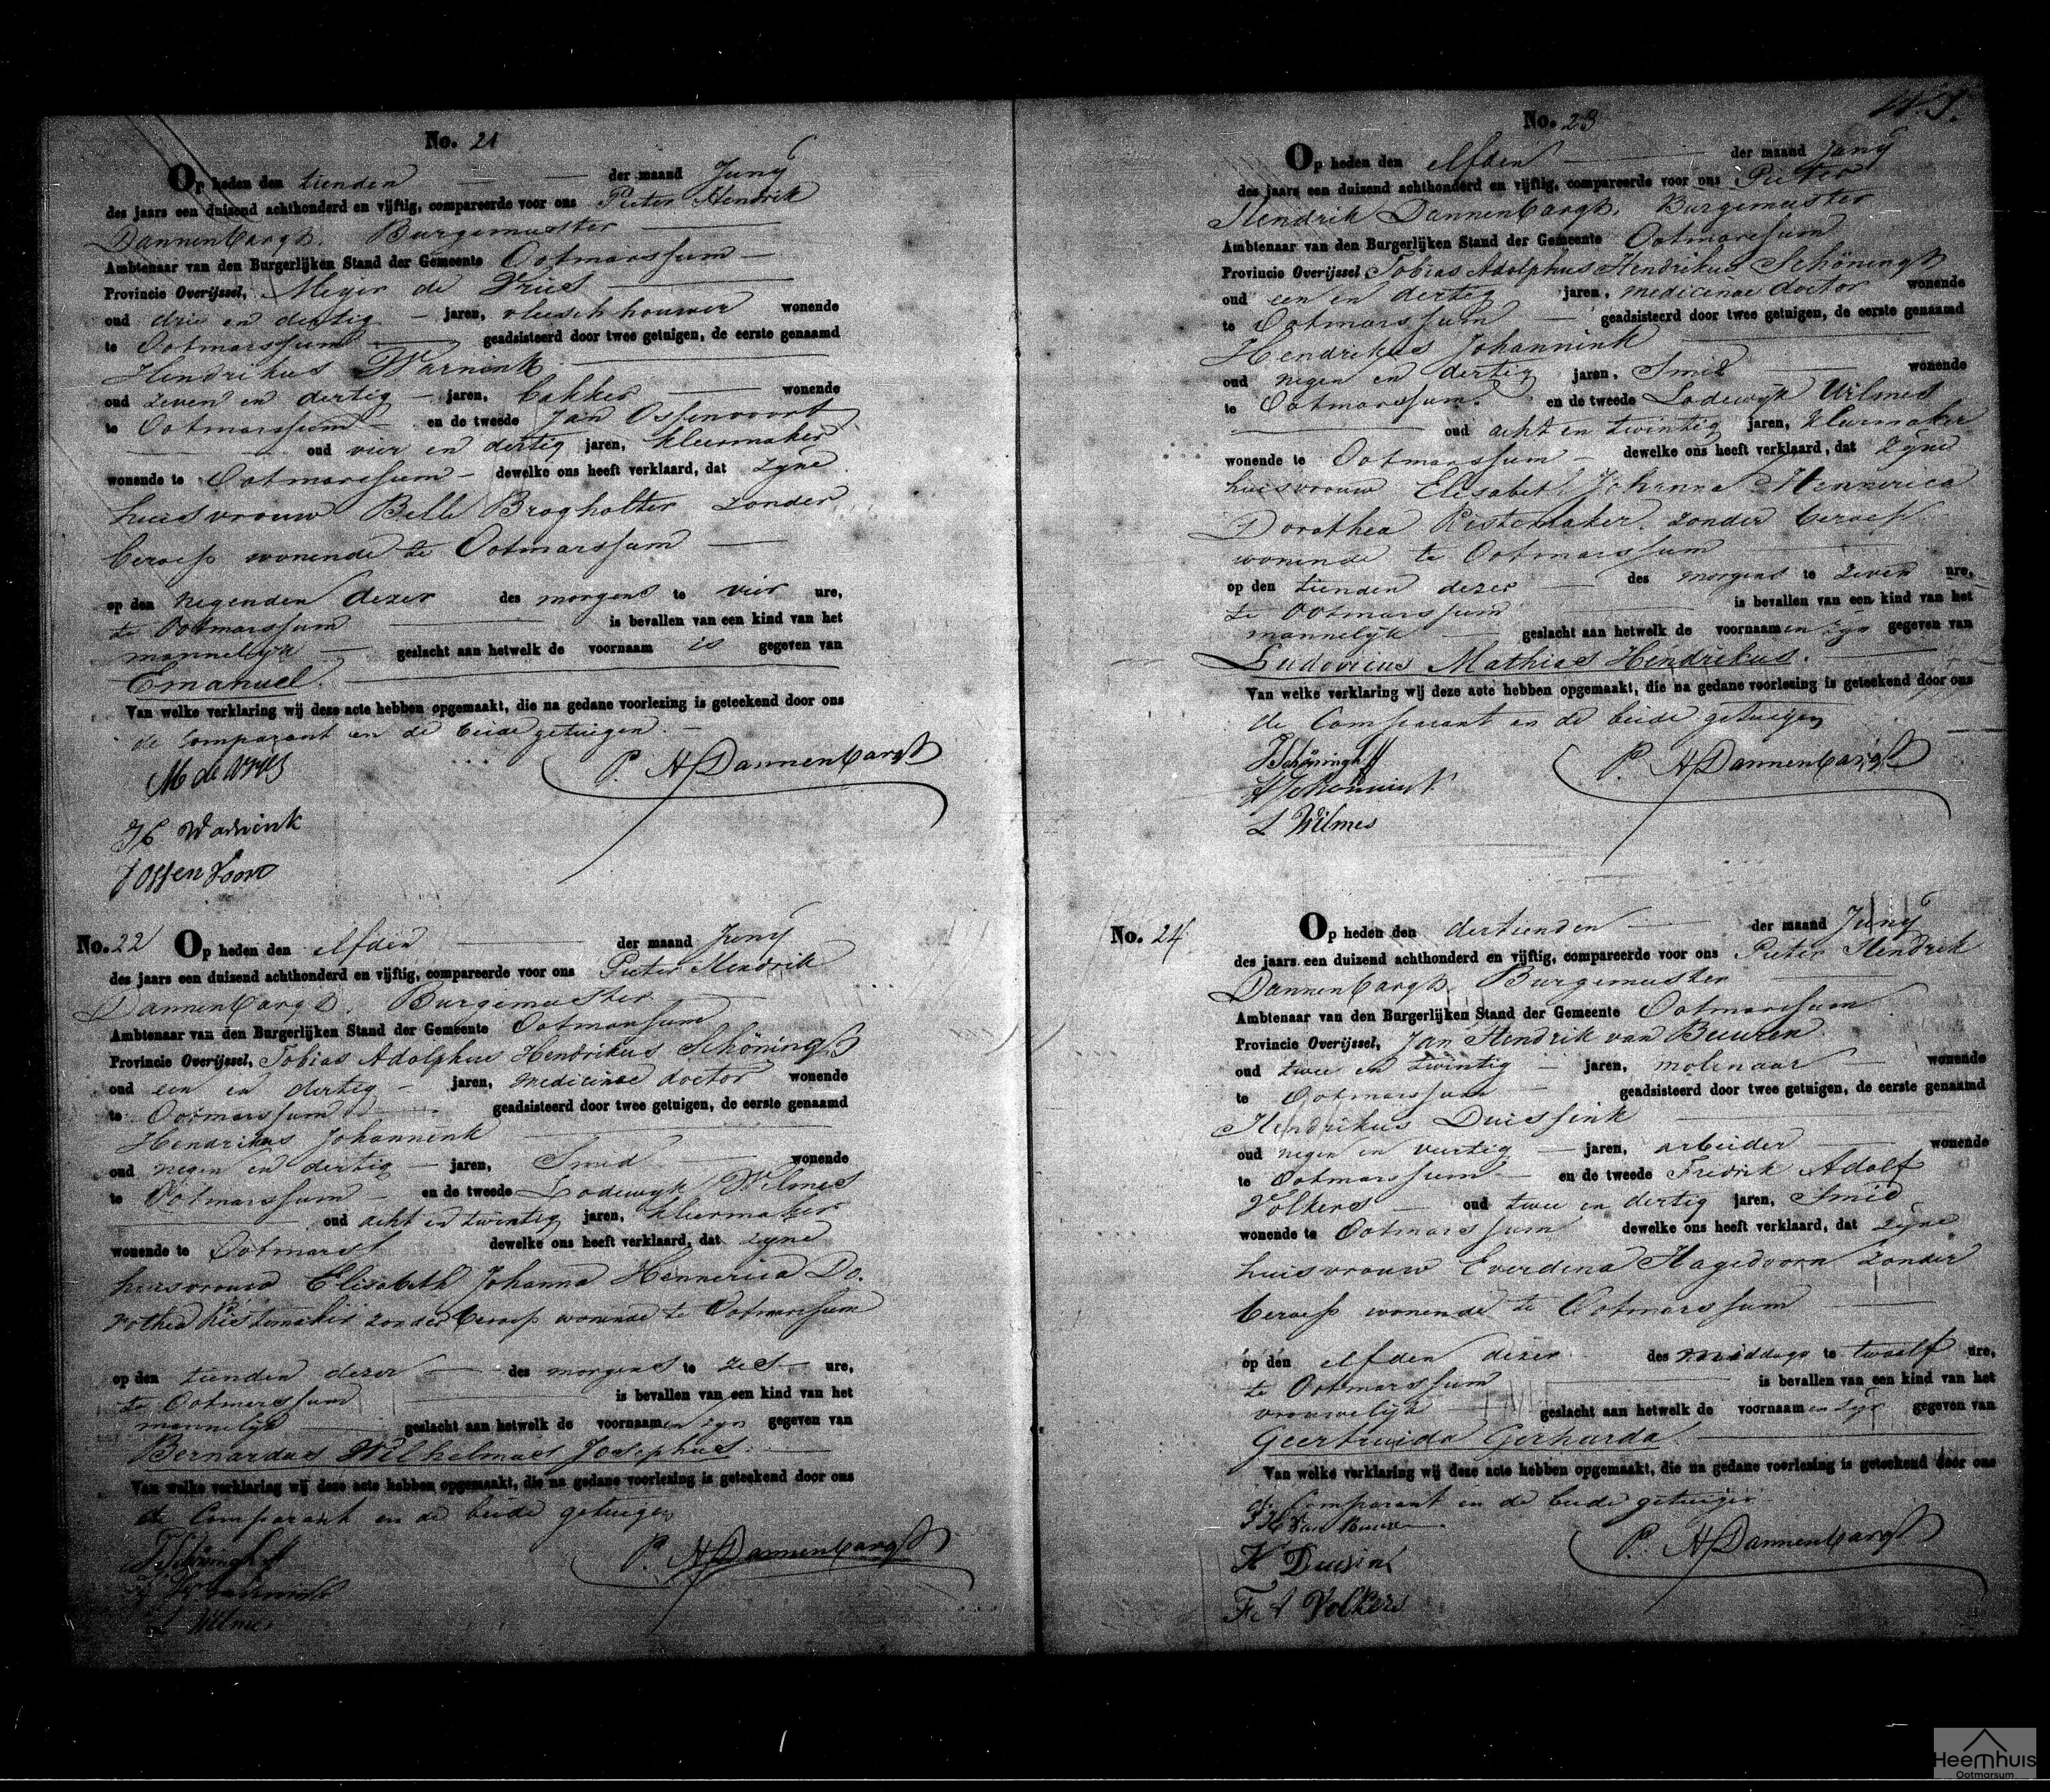 No. 21
Op heden den tienden der maand Juny
des jaars een duizend achthonderd en vijftig, compareerde voor ons Pieter Hendrik
Dannenbargh, Burgemeester
Ambtenaar van den Burgerlijken Stand der Gemeente Ootmarssum
Provincie Overijssel, Meyer de Vries
oud drie en dertig jaren, vleeschhouwer wonende
te Ootmarssum geadsisteerd door twee getuigen, de eerste genaamd
Hendrikus Warnink
oud zeven en dertig jaren, bakker wonende
te Ootmarssum en de tweede Jan Ossenvoort
oud vier en dertig jaren, kleermaker
wonende te Ootmarssum dewelke ons heeft verklaard, dat zyne
huisvrouw Belle Brogholter zonder
beroep wonende te Ootmarssum
op den negenden dezer des morgens te vier ure,
te Ootmarssum is bevallen van een kind van het
mannelyk geslacht aan hetwelk de voornaam is gegeven van
Emanuel.
Van welke verklaring wij deze acte hebben opgemaakt, die na gedane voorlezing is geteekend door ons
de Comparant en de beide getuigen.
M de Vries
P. H Dannenbargh
H Warnink
J Ossenvoort
No. 22 Op heden den elfden der maand Juny
des jaars een duizend achthonderd en vijftig, compareerde voor ons Pieter Hendrik
Dannenbargh, Burgemeester
Ambtenaar van den Burgerlijken Stand der Gemeente Ootmarssum
Provincie Overijssel, Tobias Adolphus Hendrikus Schöningh
oud een en dertig jaren, medicinae doctor wonende
te Ootmarssum geadsisteerd door twee getuigen, de eerste genaamd
Hendrikus Johannink
oud negen en dertig jaren, Smid wonende
te Ootmarssum en de tweede Lodewyk Wilmes
oud acht en twintig jaren, kleermaker
wonende te Ootmarss dewelke ons heeft verklaard, dat zyne
huisvrouw Elisabeth Johanna Hennerica Do.
rothea Ristemaker zonder beroep wonende te Ootmarssum
op den tienden dezer des morgens te zes ure,
te Ootmarssum is bevallen van een kind van het
mannelyk geslacht aan hetwelk de voornaamen zyn gegeven van
Bernardus Wilhelmus Josephus.
Van welke verklaring wij deze acte hebben opgemaakt, die na gedane voorlezing is geteekend door ons
de Comparant en de beide getuigen
Schöningh
P. H Dannenbargh
L Wilmes
No. 23
Op heden den elfden der maand Juny
des jaars een duizend achthonderd en vijftig, compareerde voor ons Pieter
Hendrik Dannenbargh, Burgemeester
Ambtenaar van den Burgerlijken Stand der Gemeente Ootmarssum
Provincie Overijssel, Tobias Adolphus Hendrikus Schöningh
oud een en dertig jaren, medicinae doctor wonende
te Ootmarssum geadsisteerd door twee getuigen, de eerste genaamd
Hendrikus Johannink
oud negen en dertig jaren, Smid wonende
te Ootmarssum. en de tweede Lodewyk Wilmes
oud acht en twintig jaren, kleermaker
wonende te Ootmarssum dewelke ons heeft verklaard, dat zyne
huisvrouw Elisabet Johanna Hennerica
Dorothea Ristemaker, zonder beroep
wonende te Ootmarssum
op den tienden dezer des morgens te zeven ure,
te Ootmarssum is bevallen van een kind van het
mannelyk geslacht aan hetwelk de voornaamen zyn gegeven van
Ludovicus Mathias Hendrikus.
Van welke verklaring wij deze acte hebben opgemaakt, die na gedane voorlezing is geteekend door ons
de Comparant en de beide getuigen
Schöningh
P. H Dannenbargh
H Johannink
L Wilmes
No. 24 Op heden den dertienden der maand Juny
des jaars een duizend achthonderd en vijftig, compareerde voor ons Pieter Hendrik
Dannenbargh, Burgemeester
Ambtenaar van den Burgerlijken Stand der Gemeente Ootmarssum
Provincie Overijssel, Jan Hendrik van Beuren
oud twee en twintig jaren, molenaar wonende
te Ootmarssum geadsisteerd door twee getuigen, de eerste genaamd
Hendrikus Duissink
oud negen en veertig jaren, arbeider wonende
te Ootmarssum en de tweede Fredrik Adolf
Volkers oud twee en dertig jaren, Smid
wonende te Ootmarssum dewelke ons heeft verklaard, dat zyne
huisvrouw Everdina Hagedoorn zonder
beroep wonende te Ootmarssum
op den elfden dezer des middags te twaalf ure,
te Ootmarssum is bevallen van een kind van het
vrouwelyk geslacht aan hetwelk de voornaamen zyn gegeven van
Geertruida Gerharda.
Van welke verklaring wij deze acte hebben opgemaakt, die na gedane voorlezing is geteekend door ons
de Comparant en de beide getuigen
J H van Beuren
P. H Dannenbargh
H Duisink
F A Volkers
Heemhuis
Ootmarsum